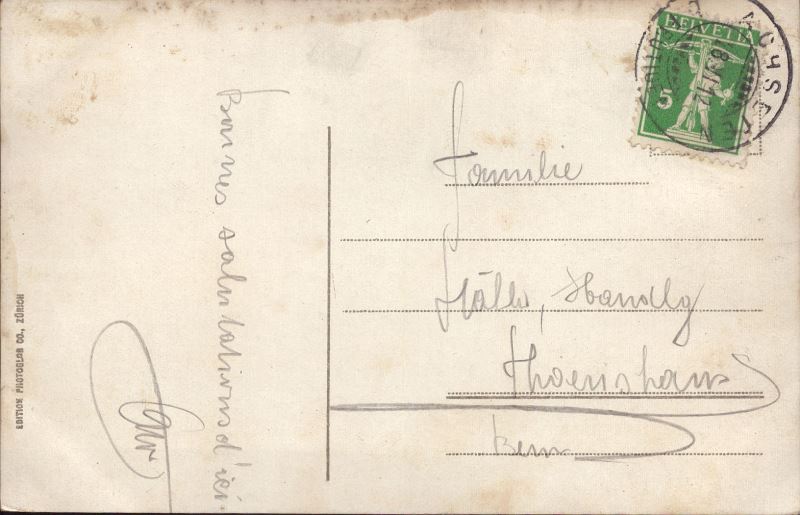 HELVETIA
5
Familie
Handlg
Thörishaus
Bern
Bonnes salutations d'ici
EDITION PHOTOGLOB CO., ZÜRICH